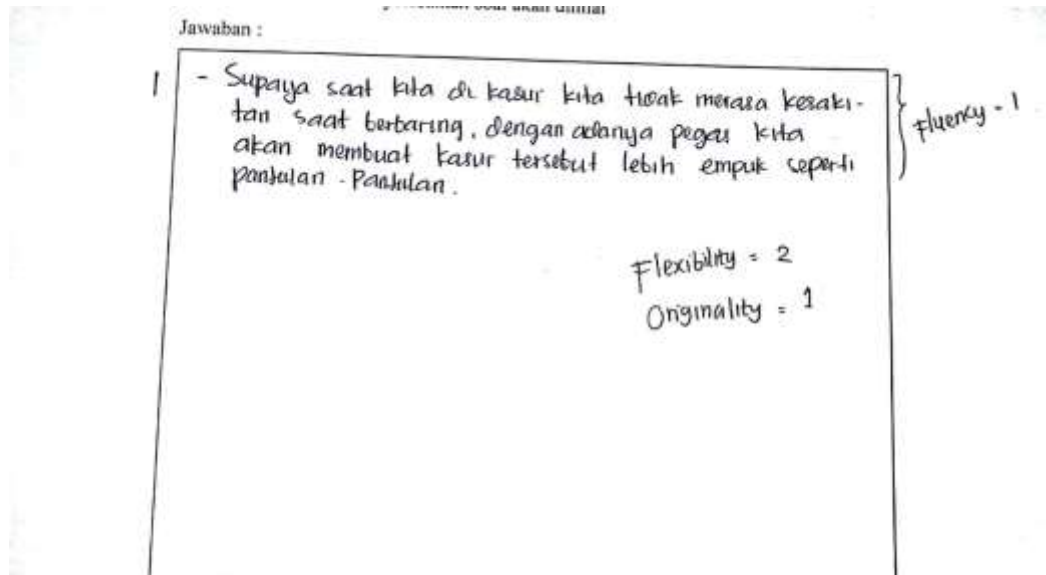 Jawaban :
1 - Supaya saat kita di kasur kita tidak merasa kesaki-
tan saat berbaring, dengan adanya pegas kita
akan membuat kasur tersebut lebih empuk seperti
pantulan - Pantulan.
Fluency - 1
Flexibility = 2
Originality = 1